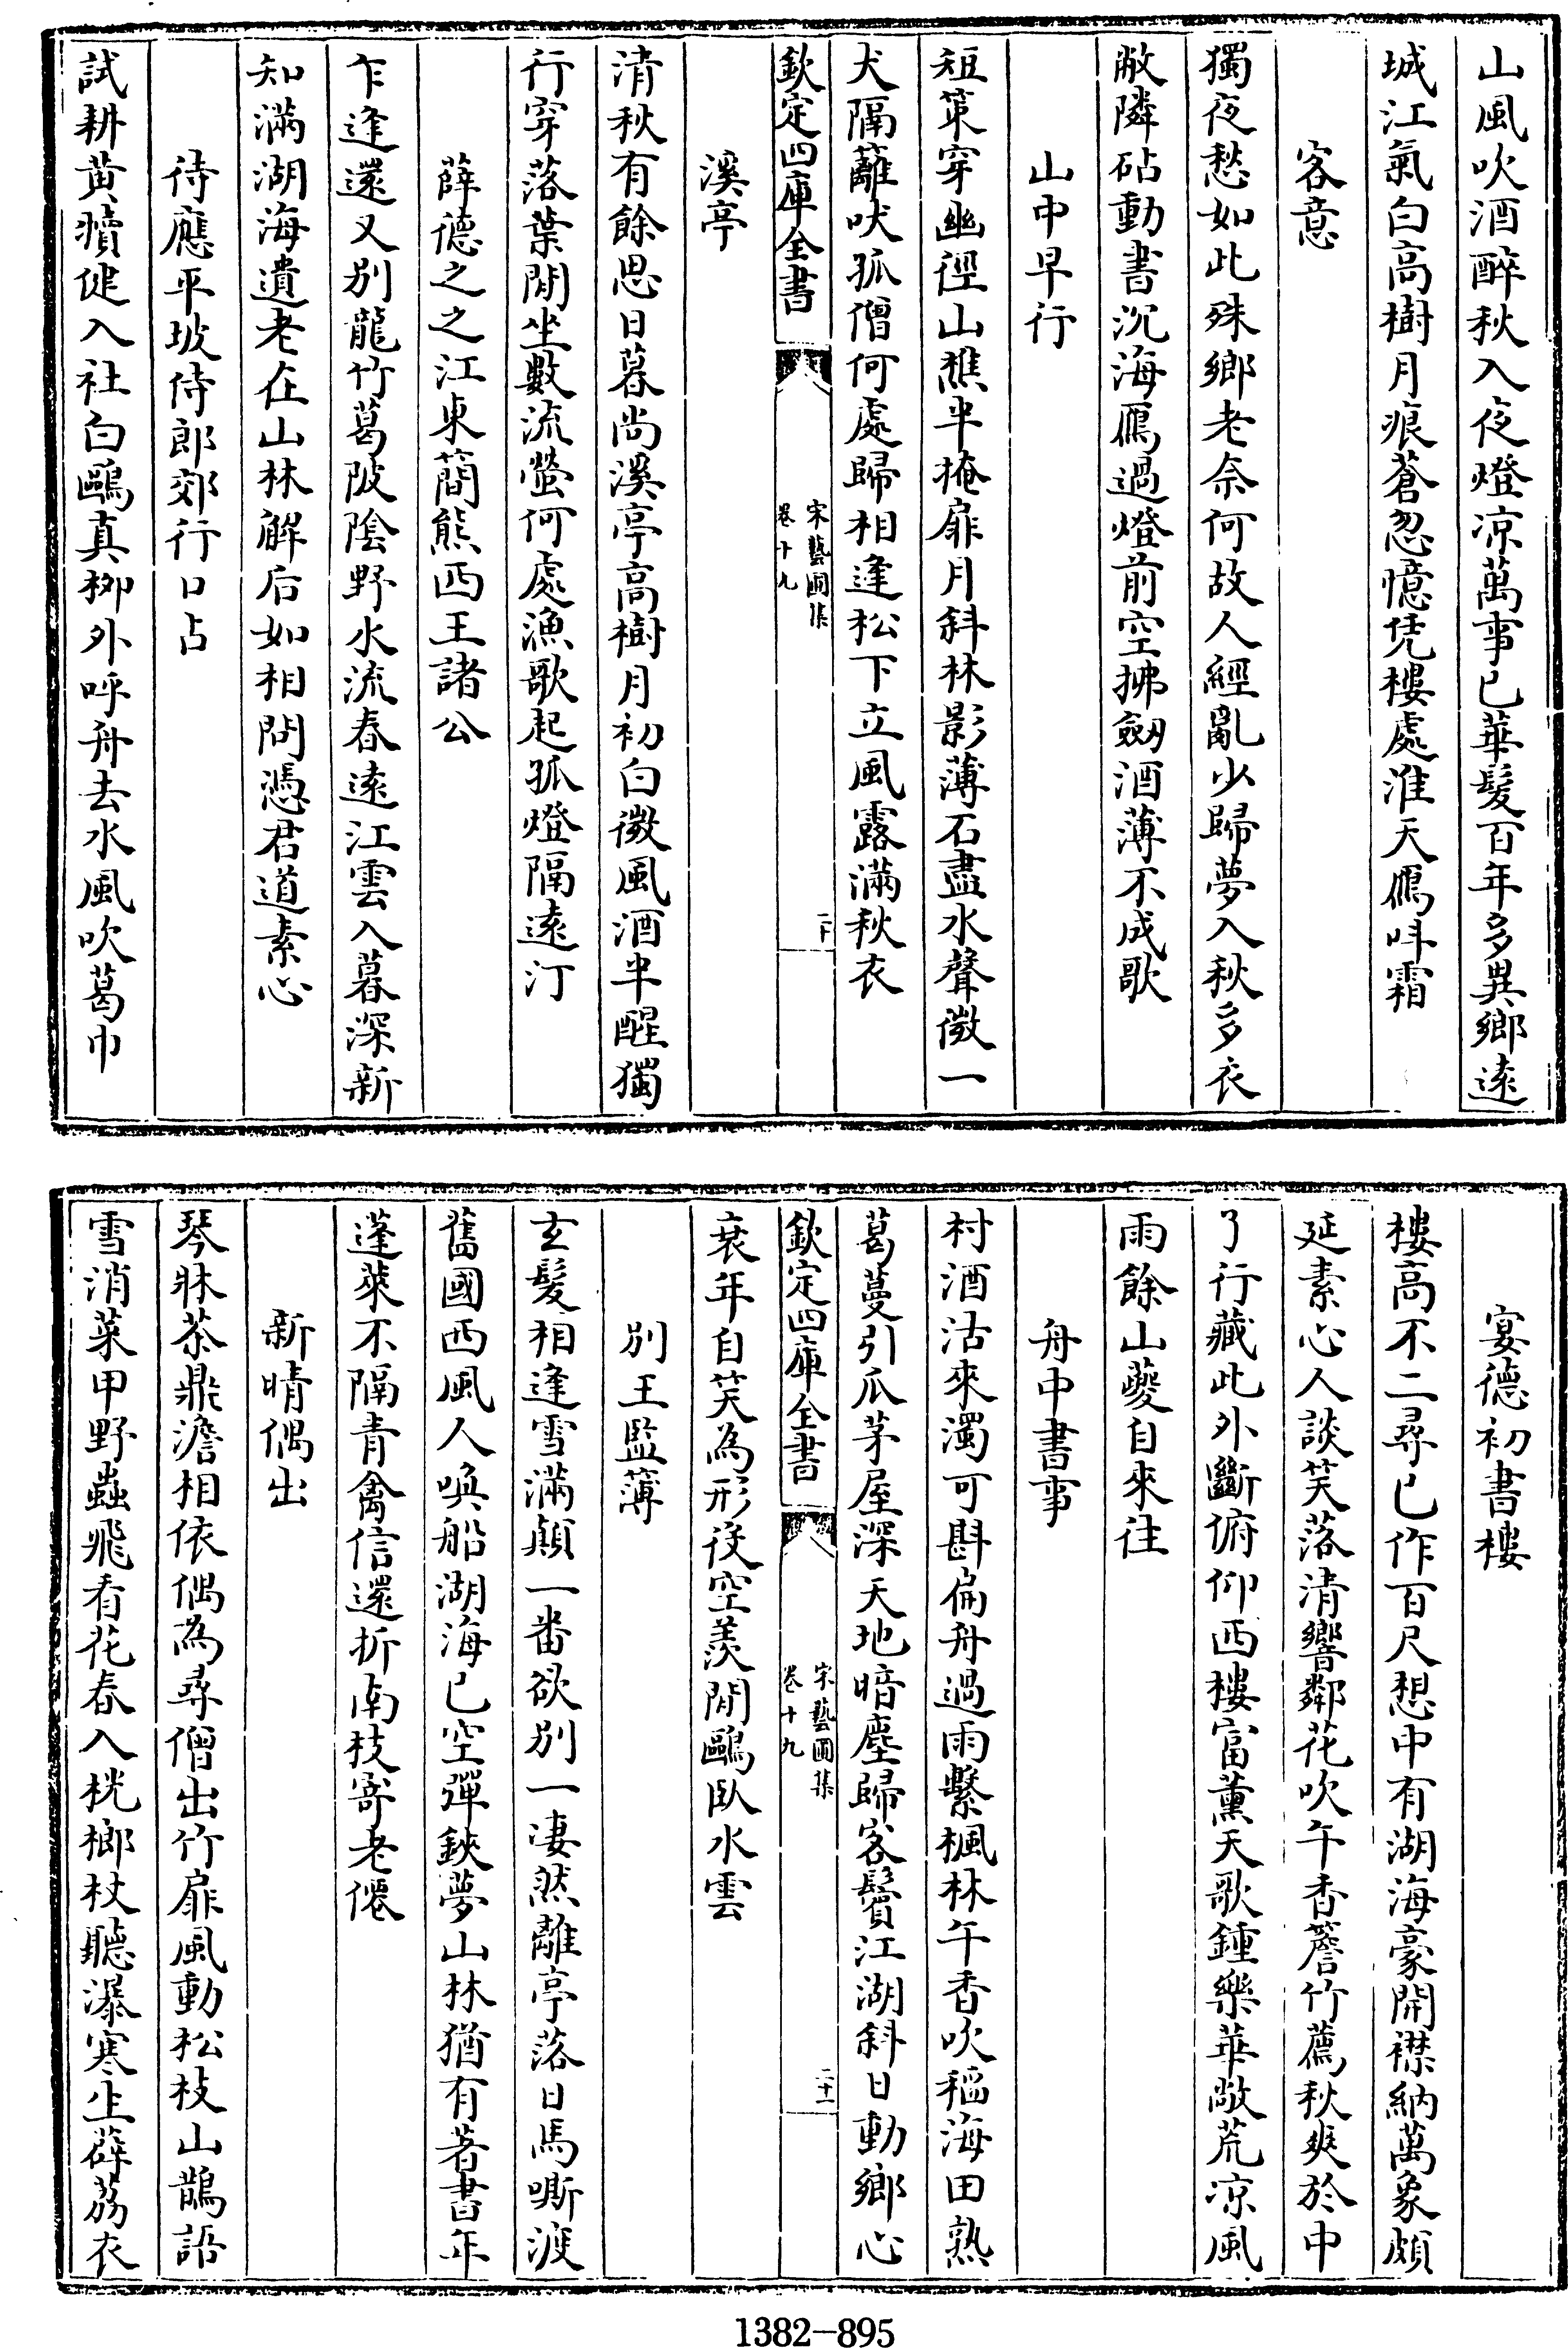 山風吹酒醉秋入夜燈凉萬事已華髪百年多異鄉逺
城江氣白高樹月痕蒼忽憶凭樓處淮天鴈呌霜
客意
獨夜愁如此殊鄉老奈何故人經亂少歸夢入秋多衣
敝隣砧動書沉海鴈過燈前空拂劍酒薄不成歌
山中早行
短策穿幽徑山樵半掩扉月斜林影薄石盡水聲微一
犬隔籬吠孤僧何處歸相逢松下立風露滿秋衣
欽定四庫全書
宋藝圃集
卷十九
二十
溪亭
清秋有餘思日暮尚溪亭高樹月初白微風酒半醒獨
行穿落葉閒坐數流螢何處漁歌起孤燈隔逺汀
薛德之之江東簡熊西王諸公
乍逢還又别龍竹葛陂隂野水流春逺江雲入暮深新
知滿湖海遺老在山林解后如相問憑君道素心
待應平坡侍郎郊行口占
試耕黄犢健入社白鷗真栁外呼舟去水風吹葛巾
宴德初書樓
樓高不二尋已作百尺想中有湖海豪開襟納萬象頗
延素心人談笑落清響鄰花吹午香簷竹薦秋爽於中
了行藏此外斷俯仰西樓富薫天歌鍾樂華敞荒凉風
雨餘山夔自來往
舟中書事
村酒沽來濁可斟扁舟過雨繫楓林午香吹稲海田熟
葛蔓引瓜茅屋深天地暗塵歸客鬢江湖斜日動鄉心
欽定四庫全書
宋藝圃集
卷十九
二十一
衰年自笑為形役空羡閒鷗臥水雲
别王監簿
玄髪相逢雪滿顛一畨欲别一凄然離亭落日馬嘶渡
舊國西風人喚船湖海已空彈鋏夢山林猶有著書年
蓬萊不隔青禽信還折南枝寄老僊
新晴偶出
琴牀茶鼎澹相依偶為尋僧出竹扉風動松枝山鵲語
雪消菜甲野蟲飛看花春入桄榔杖聽瀑寒生薜荔衣
1382-895